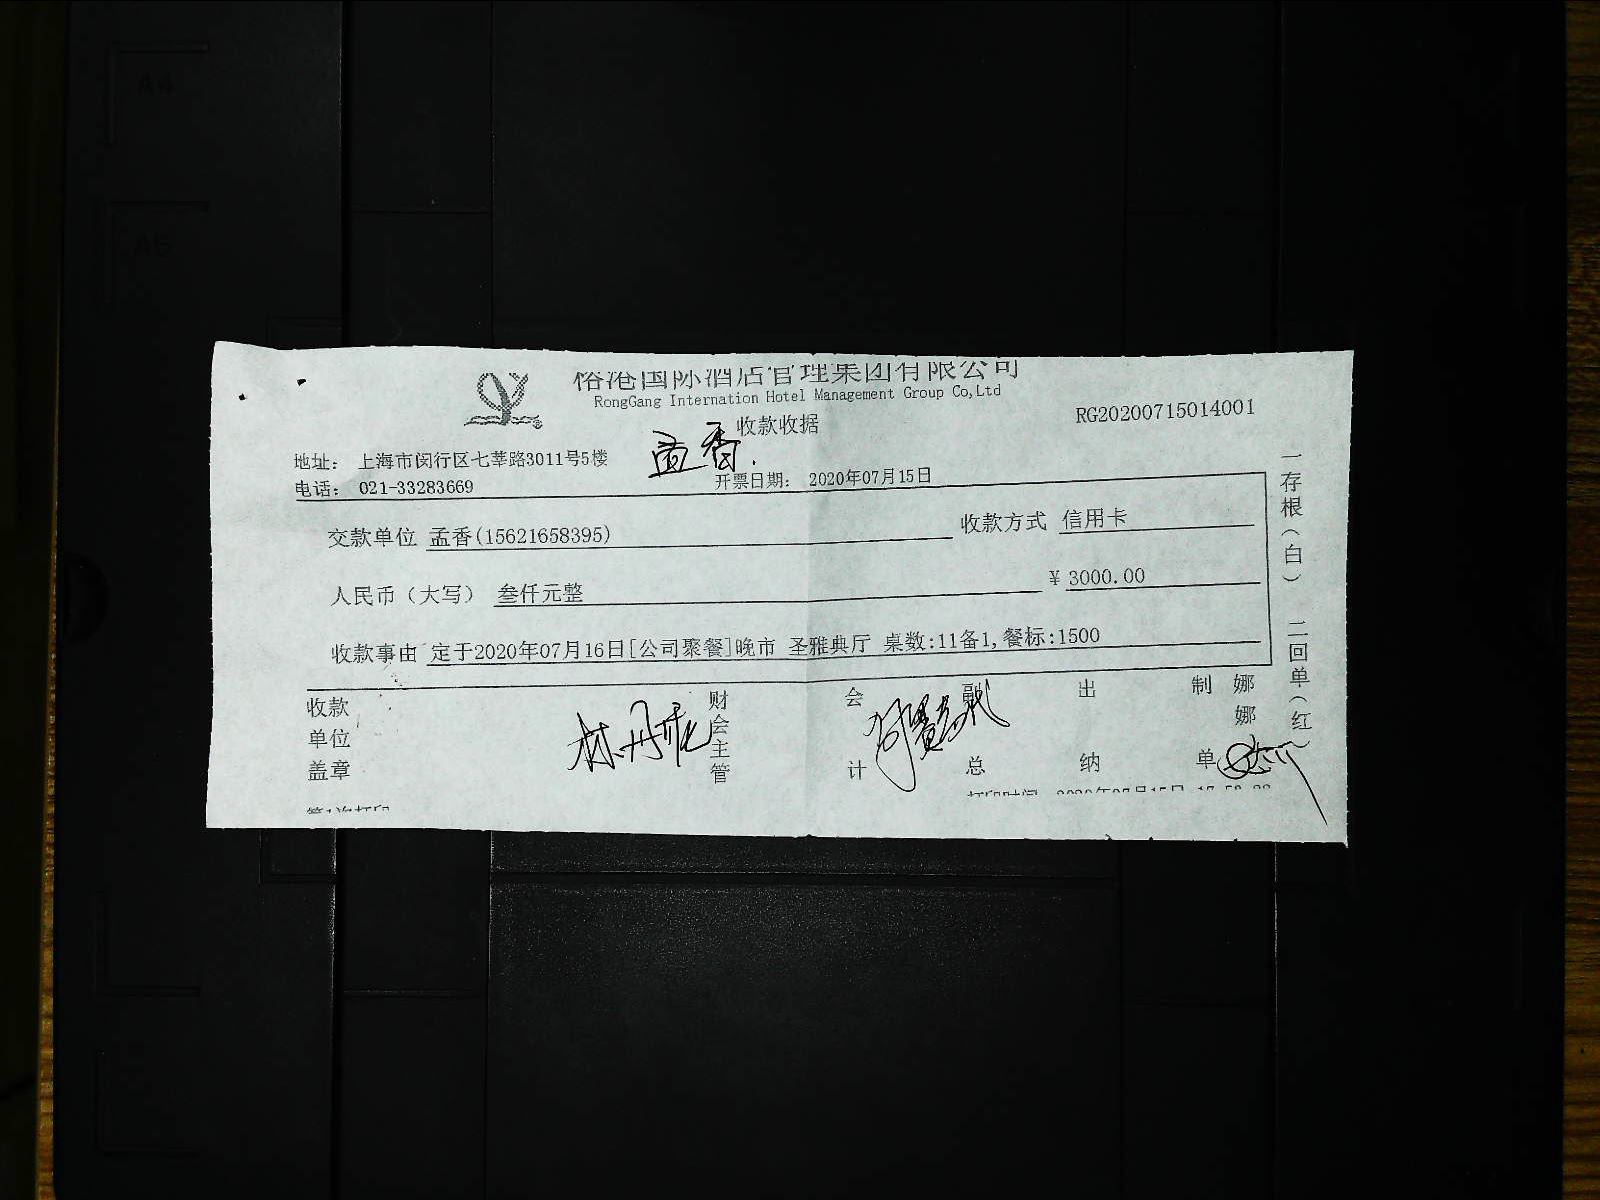 裕港国际酒店管理集团有限公司
RongGang Internation Hotel Management Group Co,Ltd
收款收据
RG20200715014001
孟香
地址: 上海市闵行区七莘路3011号5楼
电话: 021-33283669
开票日期: 2020年07月15日
交款单位 孟香(15621658395)
收款方式 信用卡
人民币（大写） 叁仟元整
¥ 3000.00
收款事由 定于2020年07月16日[公司聚餐]晚市 圣雅典厅 桌数:11备1,餐标:1500
收款单位盖章
林丹
财会主管
会计
总
出纳
制单
娜娜
一存根（白） 二回单（红）
第1次打印
打印时间 2020年07月15日
A4
A5